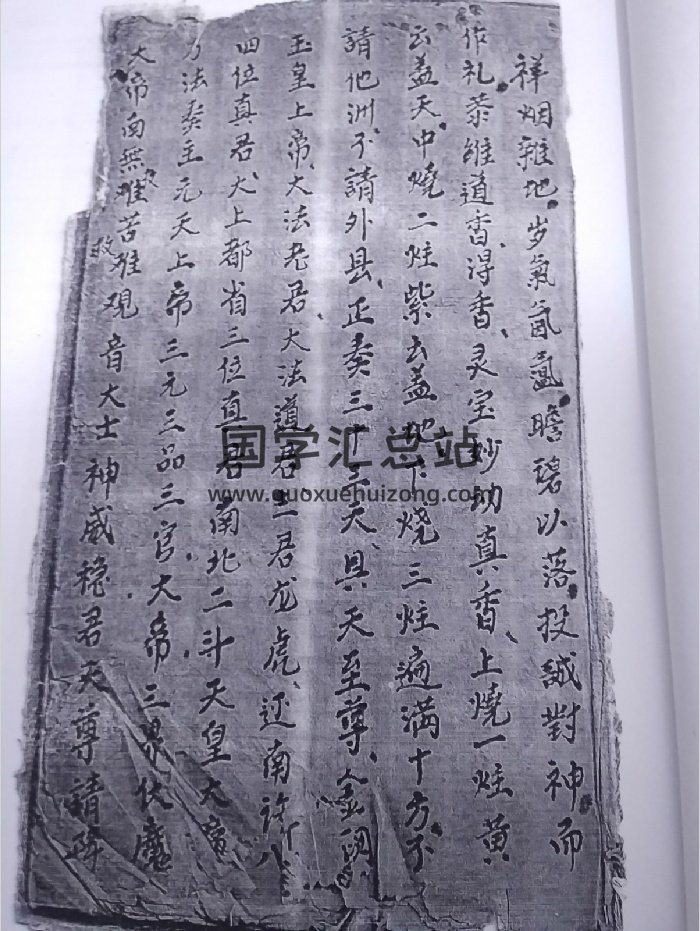 祥烟雜地岁氣氤氳瞻碧以落投誠對神而
作礼恭維道香浔香灵宝妙功真香上燒一炷黄
云盖天中燒二炷紫云盖地下烧三炷遍满十方不
請他洲不請外县正奏三十三天具天至尊金阙
玉皇上帝大法老君大法道君三君龙虎还南
四位真君大上都省三位真君南北二斗天皇大帝
万法奏主元天上帝三元三品三官大帝三界伏魔
大帝南無难苦救难观音大士神威稳君天尊請降
国学汇总站
www.guoxuehuizong.com